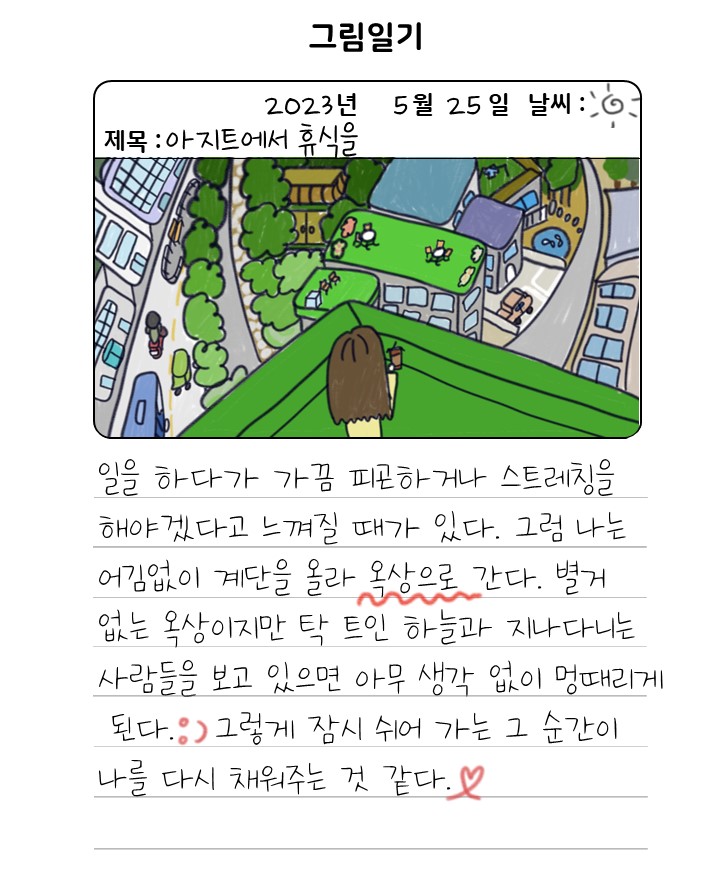 그림일기
2023년 5월 25일 날씨 :
제목 : 아지트에서 휴식을
일을 하다가 가끔 피곤하거나 스트레칭을
해야겠다고 느껴질 때가 있다. 그럼 나는
어김없이 계단을 올라 옥상으로 간다. 별거
없는 옥상이지만 탁 트인 하늘과 지나다니는
사람들을 보고 있으면 아무 생각 없이 멍때리게
된다. :) 그렇게 잠시 쉬어 가는 그 순간이
나를 다시 채워주는 것 같다.